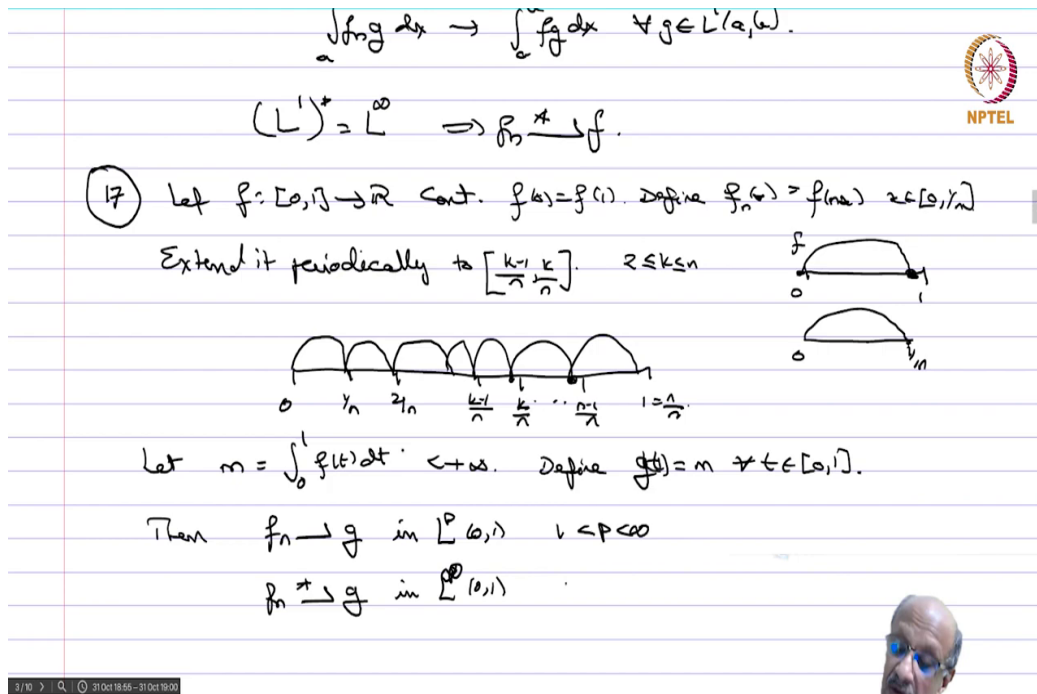 ∫ₐ fₙg dx → ∫ₐ fg dx ∀ g ∈ L¹(a,b).
NPTEL
(L¹)* = L^∞ ⇒ fₙ *⇀ f.
(17) Let f: [0,1] → ℝ cont. f(0)=f(1). Define fₙ(x) = f(nx) x∈[0,1/n]
Extend it periodically to [(k-1)/n, k/n]. 2 ≤ k ≤ n
f
0 1
0 1/n
0 1/n 2/n (k-1)/n k/n ... (n-1)/n 1 = n/n.
Let m = ∫₀¹ f(t) dt. < +∞. Define g(t) = m ∀ t ∈ [0,1].
Then fₙ ⇀ g in L^p(0,1) 1 < p < ∞
fₙ *⇀ g in L^∞(0,1)
3 / 10 31 Oct 18:55 – 31 Oct 19:00